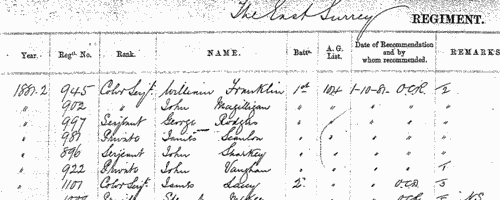 The East Surrey REGIMENT.
Year. Regtl. No. Rank. NAME. Batn. A. G. List. Date of Recommendation and by whom recommended. REMARKS
1881-2 945 Color Serjt. William Franklin 1st 104 1-10-81 O.C.R. 1/2
" 902 " John Magilligan " " " " "
" 997 Serjeant George Rodgers " " " " "
" 987 Private James Scanlon " " " "
" 896 Serjeant John Sharkey " " " "
" 922 Private John Vaughan " " " "
" 1101 Color Serjt. James Lacey 2. " " O.C.R.